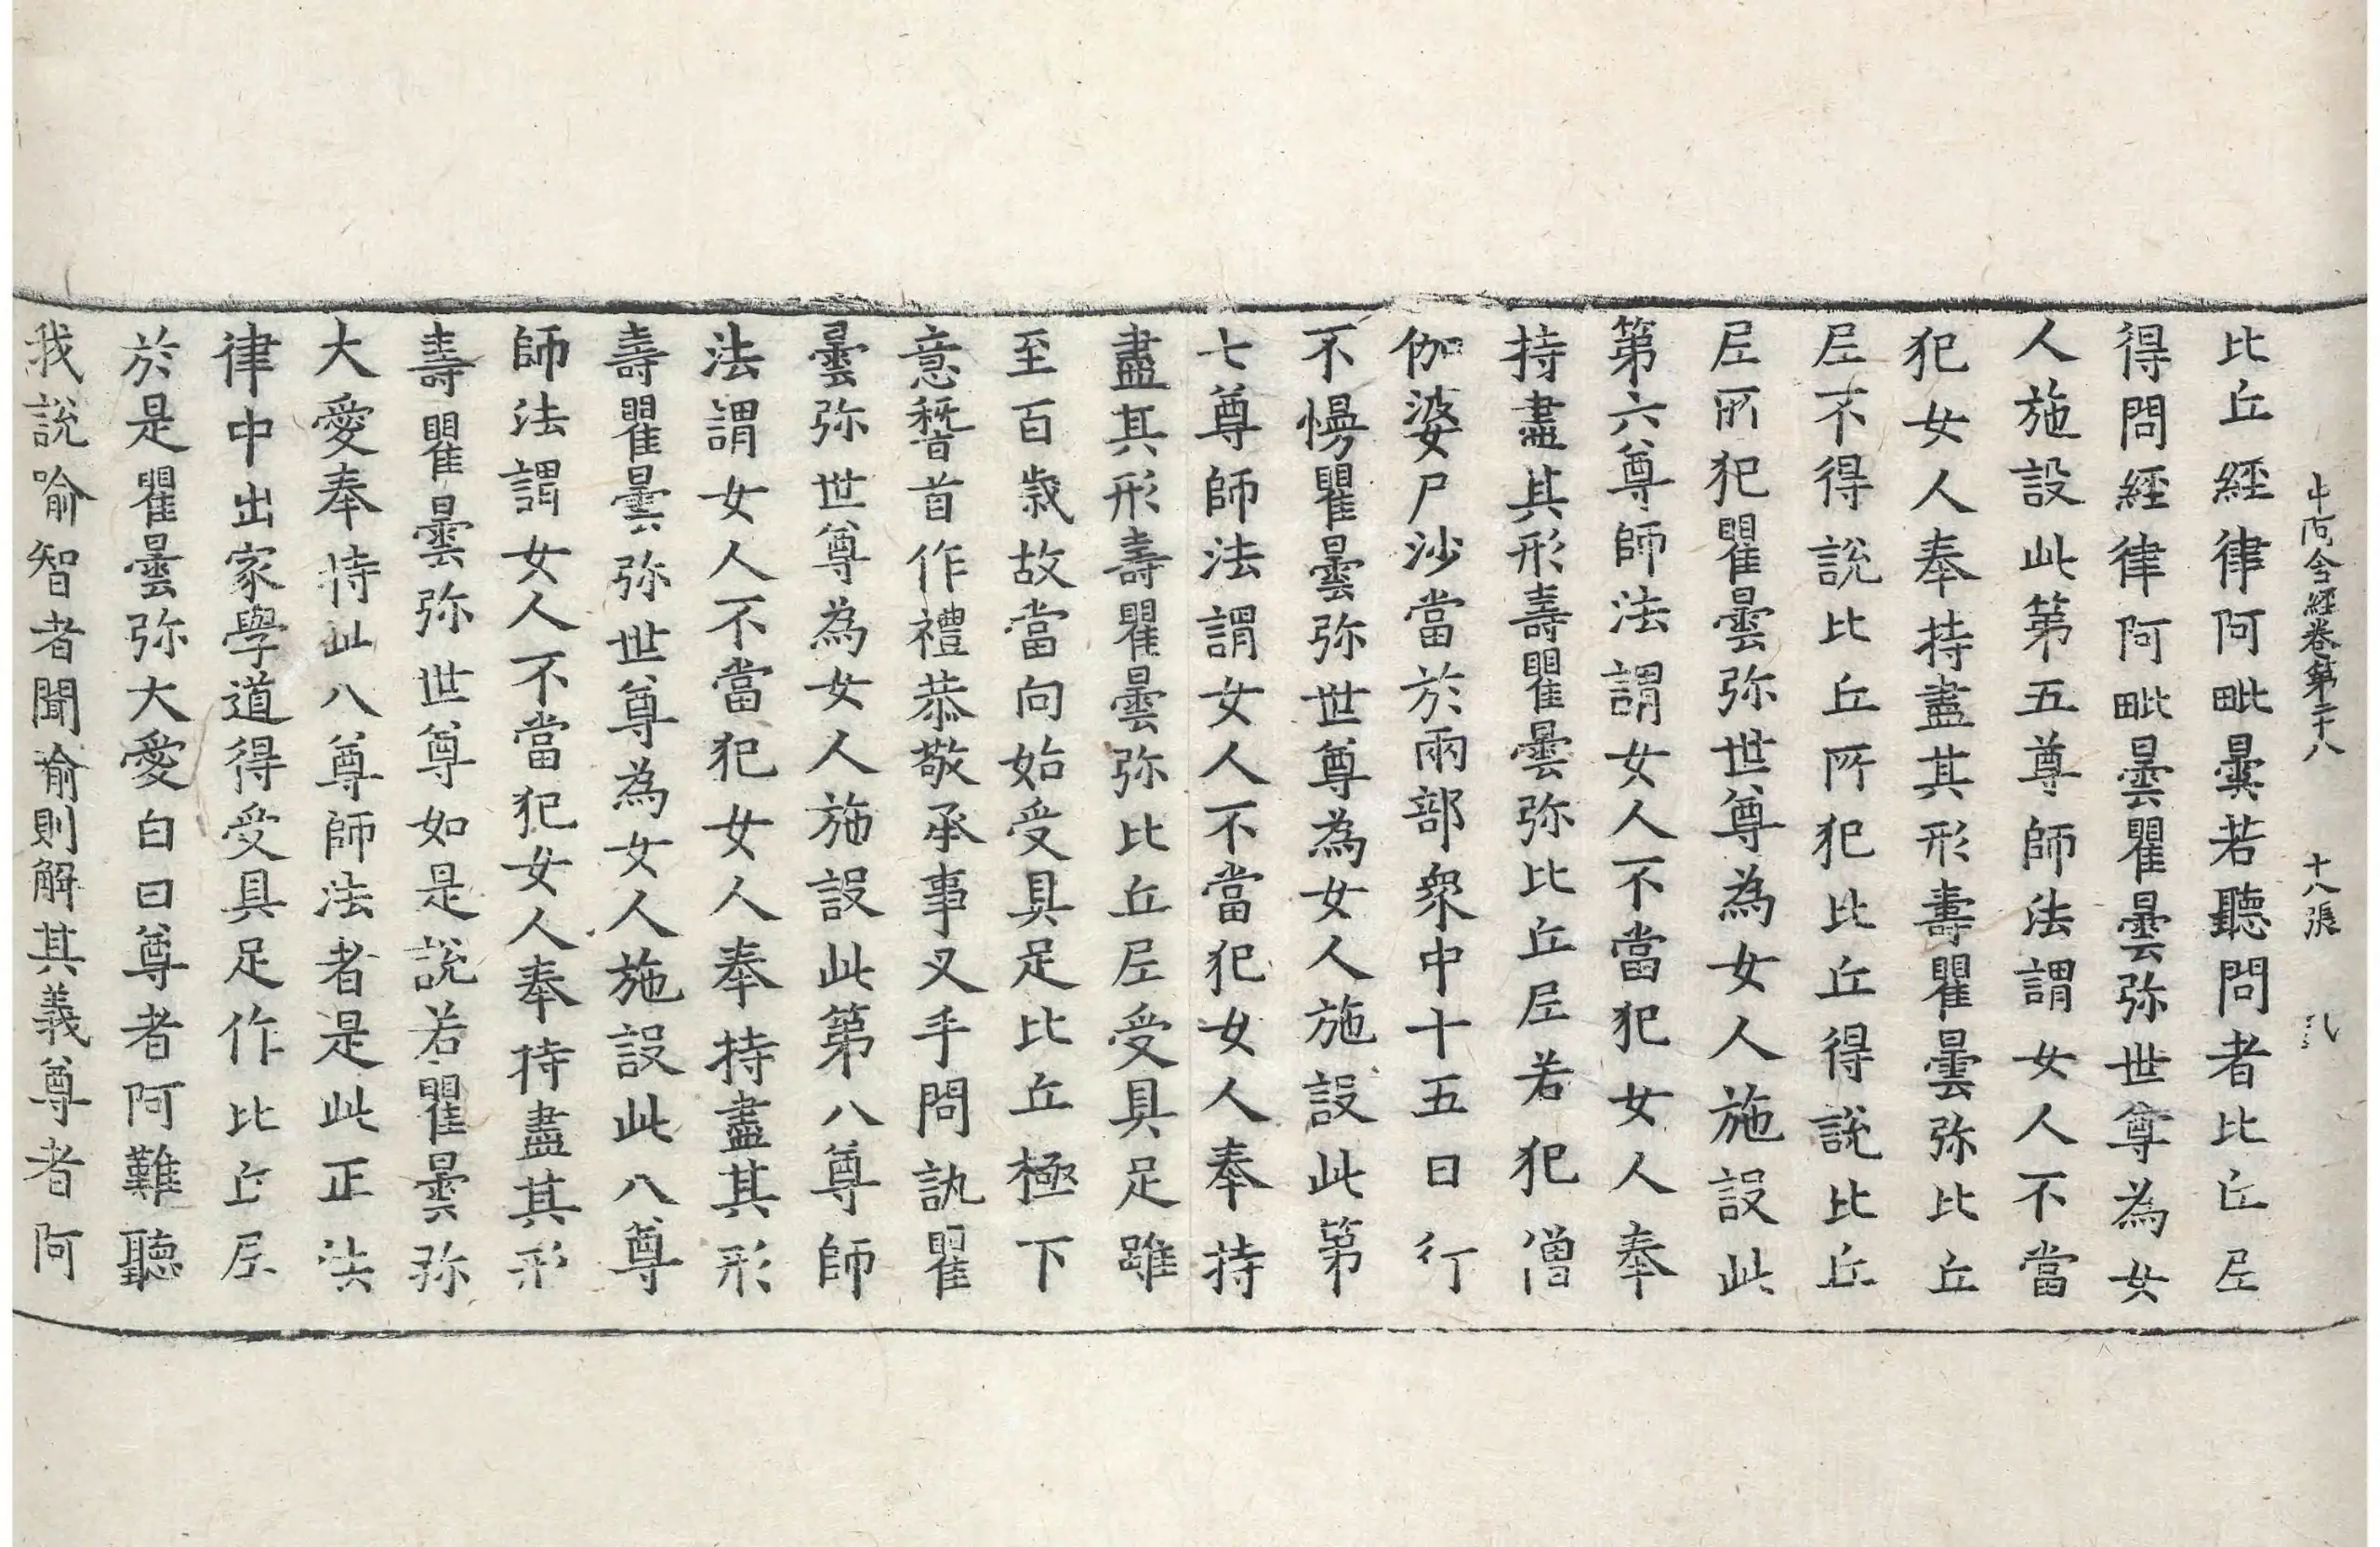 中阿含経卷第二十八 十八張
比丘經律阿毗曇若聽問者比丘尼
得問經律阿毗曇瞿曇弥世尊為女
人施設此第五尊師法謂女人不當
犯女人奉持盡其形壽瞿曇弥比丘
尼不得說比丘所犯比丘得說比丘
尼所犯瞿曇弥世尊為女人施設此
第六尊師法謂女人不當犯女人奉
持盡其形壽瞿曇弥比丘尼若犯僧
伽婆尸沙當於兩部衆中十五日行
不慢瞿曇弥世尊為女人施設此第
七尊師法謂女人不當犯女人奉持
盡其形壽瞿曇弥比丘尼受具足雖
至百歲故當向始受具足比丘極下
意稽首作禮恭敬承事叉手問訊瞿
曇弥世尊為女人施設此第八尊師
法謂女人不當犯女人奉持盡其形
壽瞿曇弥世尊為女人施設此八尊
師法謂女人不當犯女人奉持盡其形
壽瞿曇弥世尊如是說若瞿曇弥
大愛奉持此八尊師法者是此正法
律中出家學道得受具足作比丘尼
於是瞿曇弥大愛白曰尊者阿難聽
我說喻智者聞喻則解其義尊者阿